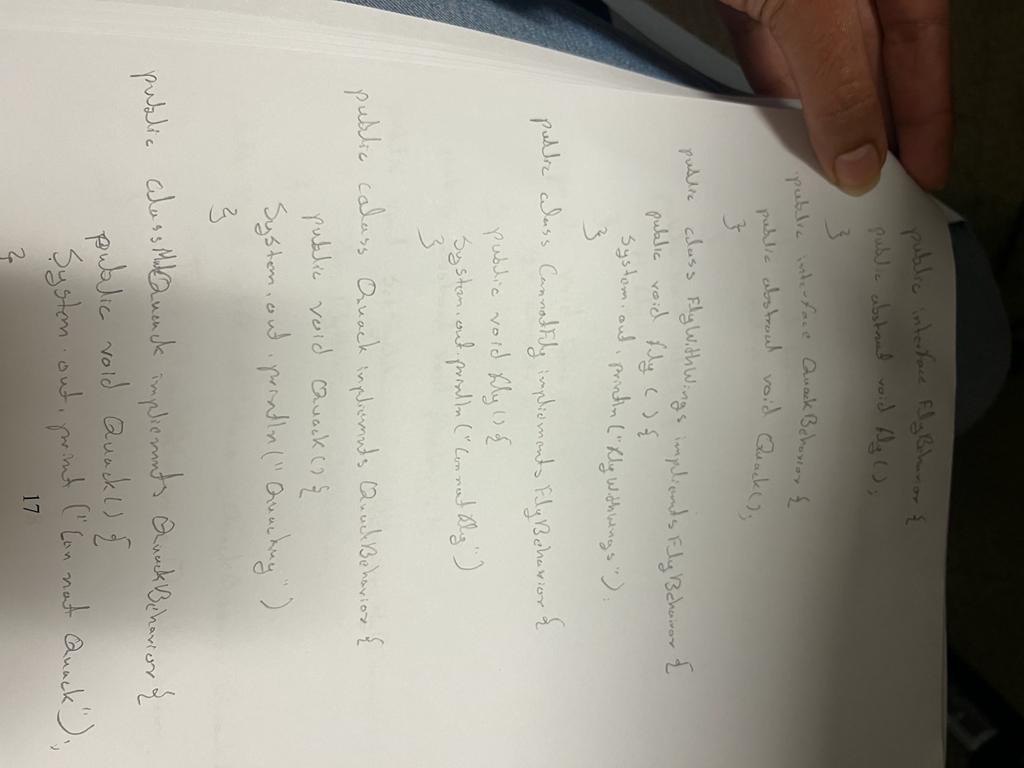 public interface FlyBehavior {
public abstract void fly();
}
public interface QuackBehavior {
public abstract void Quack();
}
public class FlyWithWings implements FlyBehavior {
public void fly () {
System.out.println("fly with wings");
}
public class CannotFly implements FlyBehavior {
public void fly() {
System.out.println("Cannot fly")
}
public class Quack implements QuackBehavior {
public void Quack() {
System.out.println("Quacking")
}
public class MuteQuack implements QuackBehavior {
public void Quack() {
System.out.print("Can not Quack");
}
17